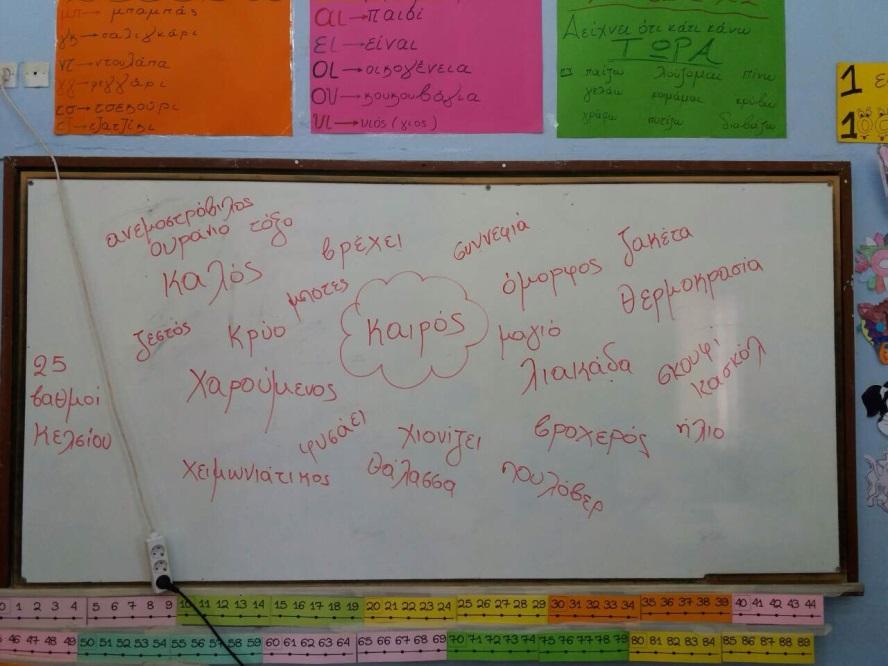 μπ → μπαμπάς
γκ → σαλιγκάρι
ντ → ντουλάπα
γγ → φεγγάρι
τσ → τσεκούρι
τζ → τζατζίκι
αι → παιδί
ει → είναι
οι → οικογένεια
ου → κουκουβάγια
υι → υιός (γιος)
Δείχνει ότι κάτι κάνω
ΤΩΡΑ
παίζω λούζομαι πίνω
γελάω κοιμάμαι κρύβω
γράφω ποτίζω διαβάζω
1
10
ανεμοστρόβιλος
ουράνιο τόξο
βρέχει
συννεφιά
ζακέτα
καλός
μποτες
όμορφος
θερμοκρασία
ζεστός
κρύο
καιρός
μαγιό
25
βαθμοί
Κελσίου
χαρούμενος
λιακάδα
σκουφί
κασκόλ
φυσάει
χιονίζει
βροχερός
ήλιο
χειμωνιάτικος
θάλασσα
πουλόβερ
0 1 2 3 4 5 6 7 8 9 10 11 12 13 14 15 16 17 18 19 20 21 22 23 24 25 26 27 28 29 30 31 32 33 34 35 36 37 38 39 40 41 42 43 44
45 46 47 48 49 50 51 52 53 54 55 56 57 58 59 60 61 62 63 64 65 66 67 68 69 70 71 72 73 74 75 76 77 78 79 80 81 82 83 84 85 86 87 88 89